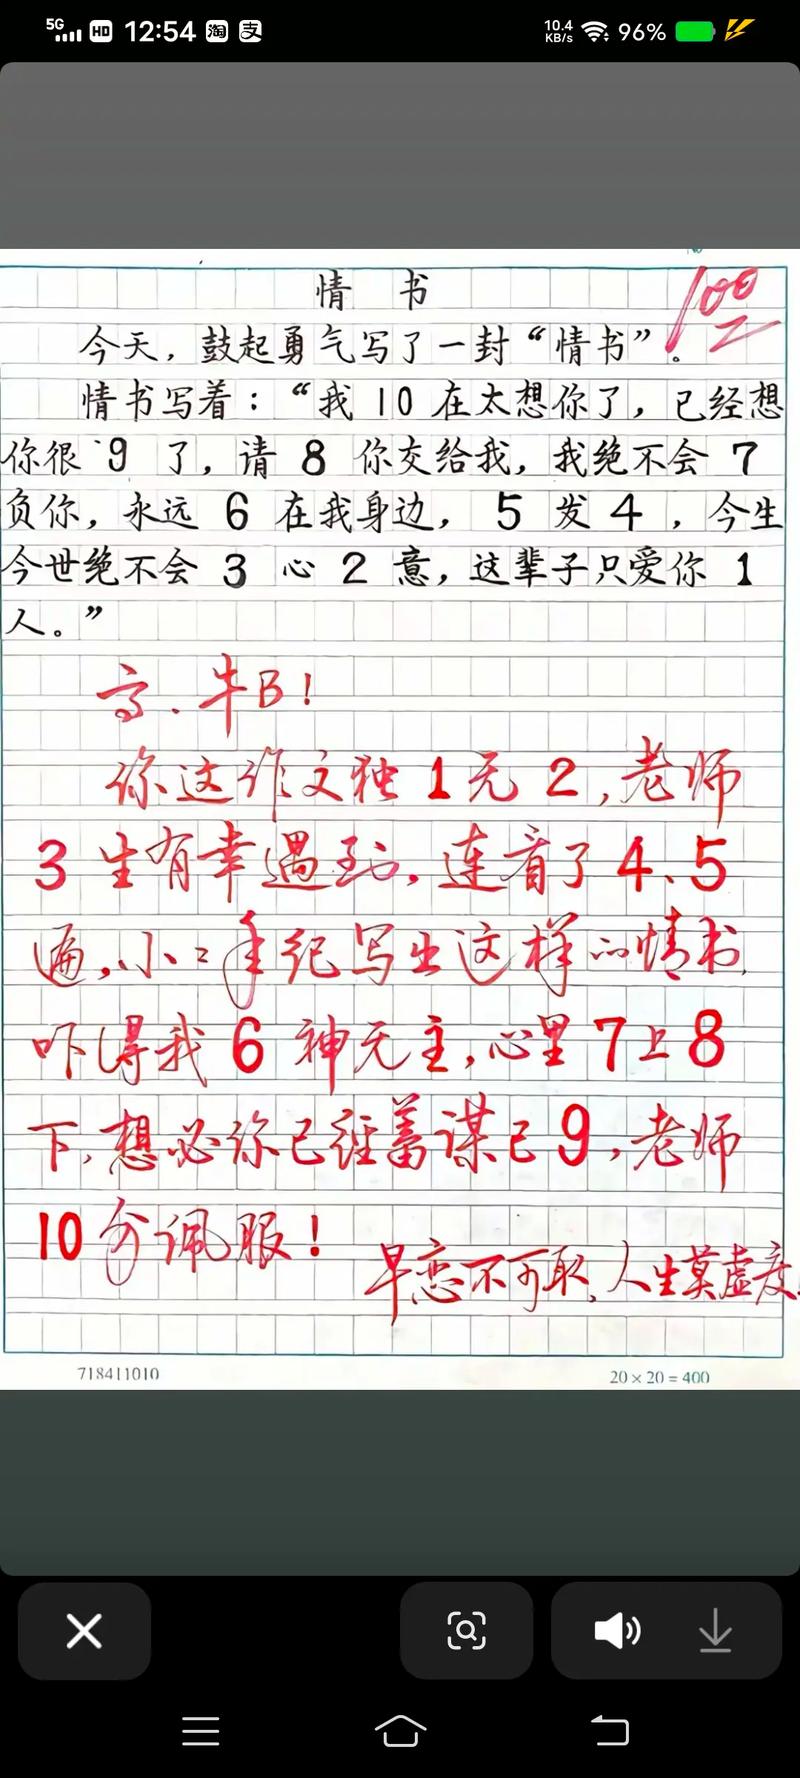 5G HD 12:54 淘 支 10.4 KB/s 96%
情 书
100
今天，鼓起勇气写了一封“情书”。
情书写着：“我 10 在太想你了，已经想
你很 9 了，请 8 你交给我，我绝不会 7
负你，永远 6 在我身边，5 发 4，今生
今世绝不会 3 心 2 意，这辈子只爱你 1
人。”
高．牛B！
你这作文独 1 无 2，老师
3 生有幸遇到，连看了 4、5
遍，小小年纪写出这样的情书，
吓得我 6 神无主，心里 7 上 8
下，想必你已经蓄谋已 9，老师
10 分佩服！
早恋不可取，人生莫虚度
718411010
20 × 20 = 400